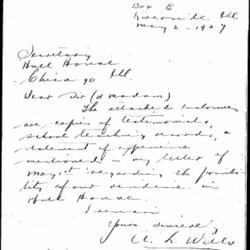 Box 6
Riverside Ill
May 2 - 1927
Secretary
Hull House
Chicago Ill.
Dear Sir (or madam)
The attached
are copies of testimonials,
school teaching records, a
statement of experience
mentioned in my letter of
May 1st regarding the possibi-
lity of our residence in
Hull House.
I remain
Yours sincerely
A. L. Wills